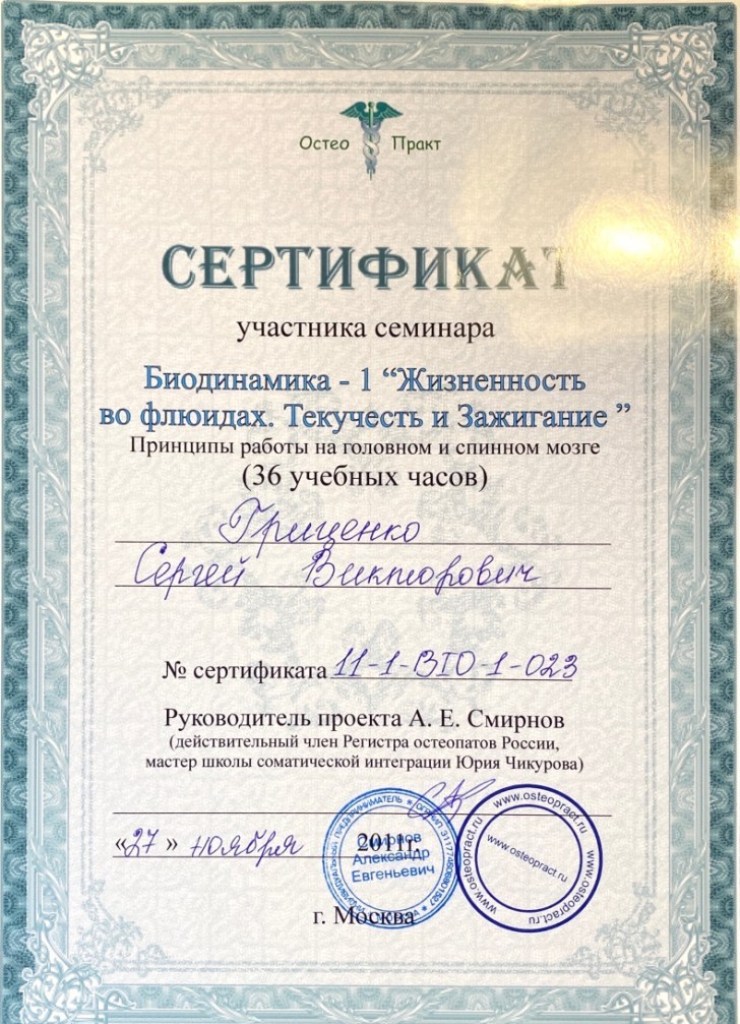 Остео Практ
СЕРТИФИКАТ
участника семинара
Биодинамика - 1 “Жизненность
во флюидах. Текучесть и Зажигание ”
Принципы работы на головном и спинном мозге
(36 учебных часов)
Гриценко
Сергей Викторович
№ сертификата 11-1-BIO-1-023
Руководитель проекта А. Е. Смирнов
(действительный член Регистра остеопатов России,
мастер школы соматической интеграции Юрия Чикурова)
«27» ноября 2011г.
г. Москва
Смирнов
Александр
Евгеньевич
ПРЕДПРИНИМАТЕЛЬ
www.osteopract.ru
www.osteopract.ru
www.osteopract.ru
www.osteopract.ru